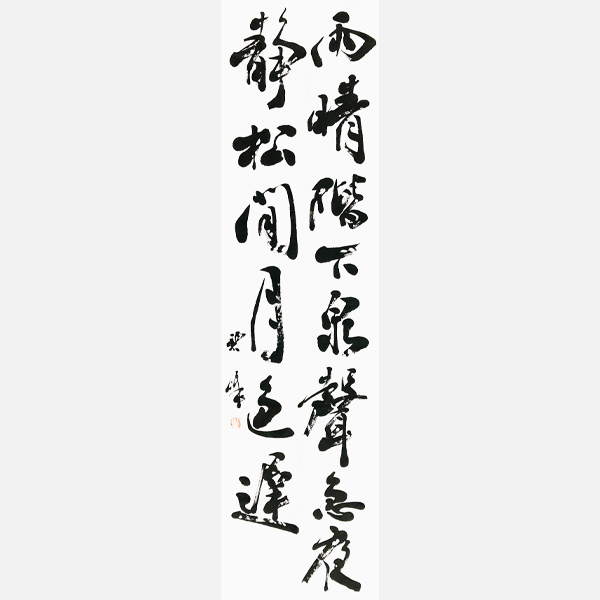 雨晴階下泉聲急夜
靜松間月色遲
碧峰